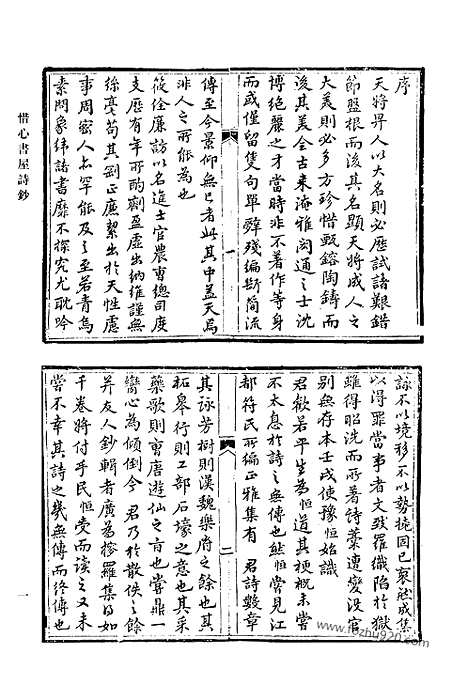 惜心書屋詩鈔
序
天將畀人以大名則必歷試諸艱錯
節盤根而後其名顯天將成人之
大美則必多方珍惜甄鎔陶鑄而
後其美全古來淹雅閎通之士沈
博絕麗之才當時非不著作等身
而或僅留隻句單辭殘編斷簡流
一
傳至今景仰無已者此其中蓋天焉
非人之所能為也
筱佺廉訪以名進士官農曹總司度
支歷有年所酌劑盈虛出納維謹無
絲毫苟其劉正廉絜出於天性慮
事周密人亦罕能及之至若青烏
素問象緯諸書靡不探究尤耽吟
詠不以境移不以勢撓固已裒然成集
以得罪當事者文致羅織陷於獄
雖得昭洗而所著詩藁遭變沒官
別無存本壬戌使豫恒始識
君歡若平生為恒道其梗概未嘗
不太息於詩之無傳也然恒嘗見江
都符氏所編正雅集有 君詩數章
二
其詠芳樹則漢魏樂府之餘也其
柘皋行則工部石壕之意也其采
藥歌則曹唐遊仙之旨也嘗鼎一
臠心為傾倒今 君乃於散佚之餘
并友人鈔輯者廣為摉羅集得如
千卷將付手民恒受而讀之又未
嘗不幸其詩之幾無傳而終傳也
一
www.fozhu920.com